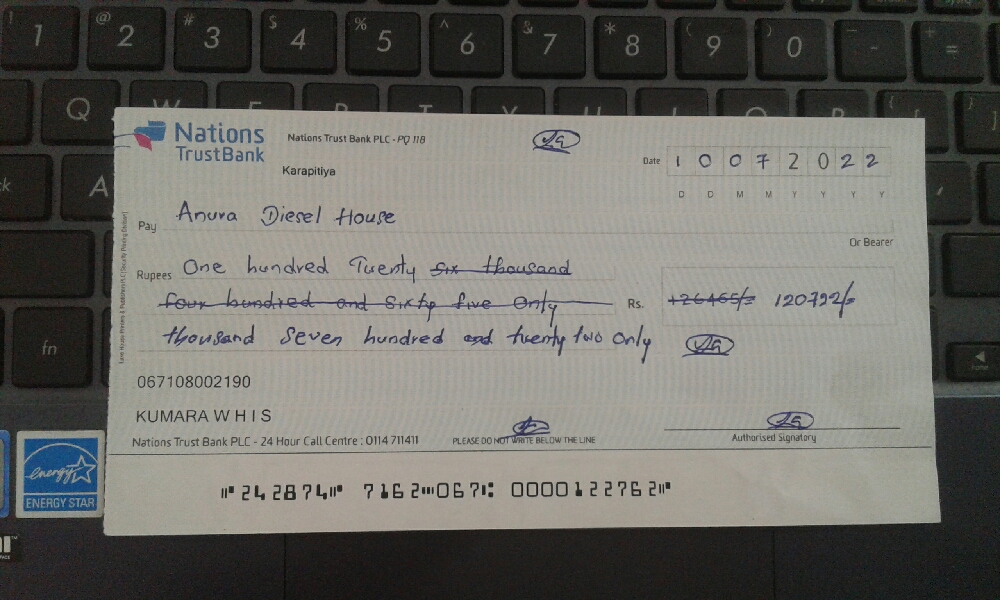 ! 1 @ 2 # 3 $ 4 % 5 ^ 6 & 7 * 8 ( 9 ) 0 _ - + =
Q W E R T Y U I O P { [ } ]
A
fn
home
Nations
TrustBank
Nations Trust Bank PLC - PQ 118
Karapitiya
Date 1 0 0 7 2 0 2 2
D D M M Y Y Y Y
Pay Anura Diesel House
Or Bearer
Rupees One hundred Twenty six thousand
four hundred and Sixty five Only
Rs. 126465/= 120722/=
thousand seven hundred and twenty two only
067108002190
KUMARA W H I S
Nations Trust Bank PLC - 24 Hour Call Centre : 0114 711411
PLEASE DO NOT WRITE BELOW THE LINE
Authorised Signatory
242874 7162 067 0000122762
energy
ENERGY STAR